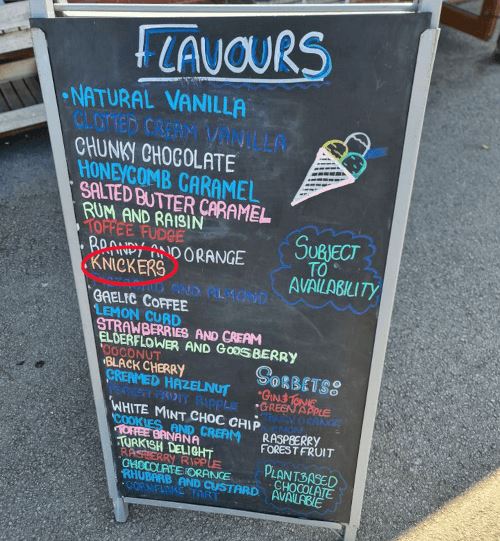 FLAVOURS
•NATURAL VANILLA
CLOTTED CREAM VANILLA
CHUNKY CHOCOLATE
HONEYCOMB CARAMEL
SALTED BUTTER CARAMEL
RUM AND RAISIN
TOFFEE FUDGE
BRANDY AND ORANGE
KNICKERS
AND ALMOND
GAELIC COFFEE
LEMON CURD
STRAWBERRIES AND CREAM
ELDERFLOWER AND GOOSBERRY
COCONUT
BLACK CHERRY
CREAMED HAZELNUT
FOREST FRUIT RIPPLE
WHITE MINT CHOC CHIP
COOKIES AND CREAM
TOFFEE BANANA
TURKISH DELIGHT
RASPBERRY RIPPLE
CHOCOLATE ORANGE
RHUBARB AND CUSTARD
CORNFLAKE TART
SUBJECT
TO
AVAILABILITY
SORBETS:
•GIN & TONIC
•GREEN APPLE
ORANGE
LEMON
RASPBERRY
FOREST FRUIT
PLANT BASED
CHOCOLATE
AVAILABLE